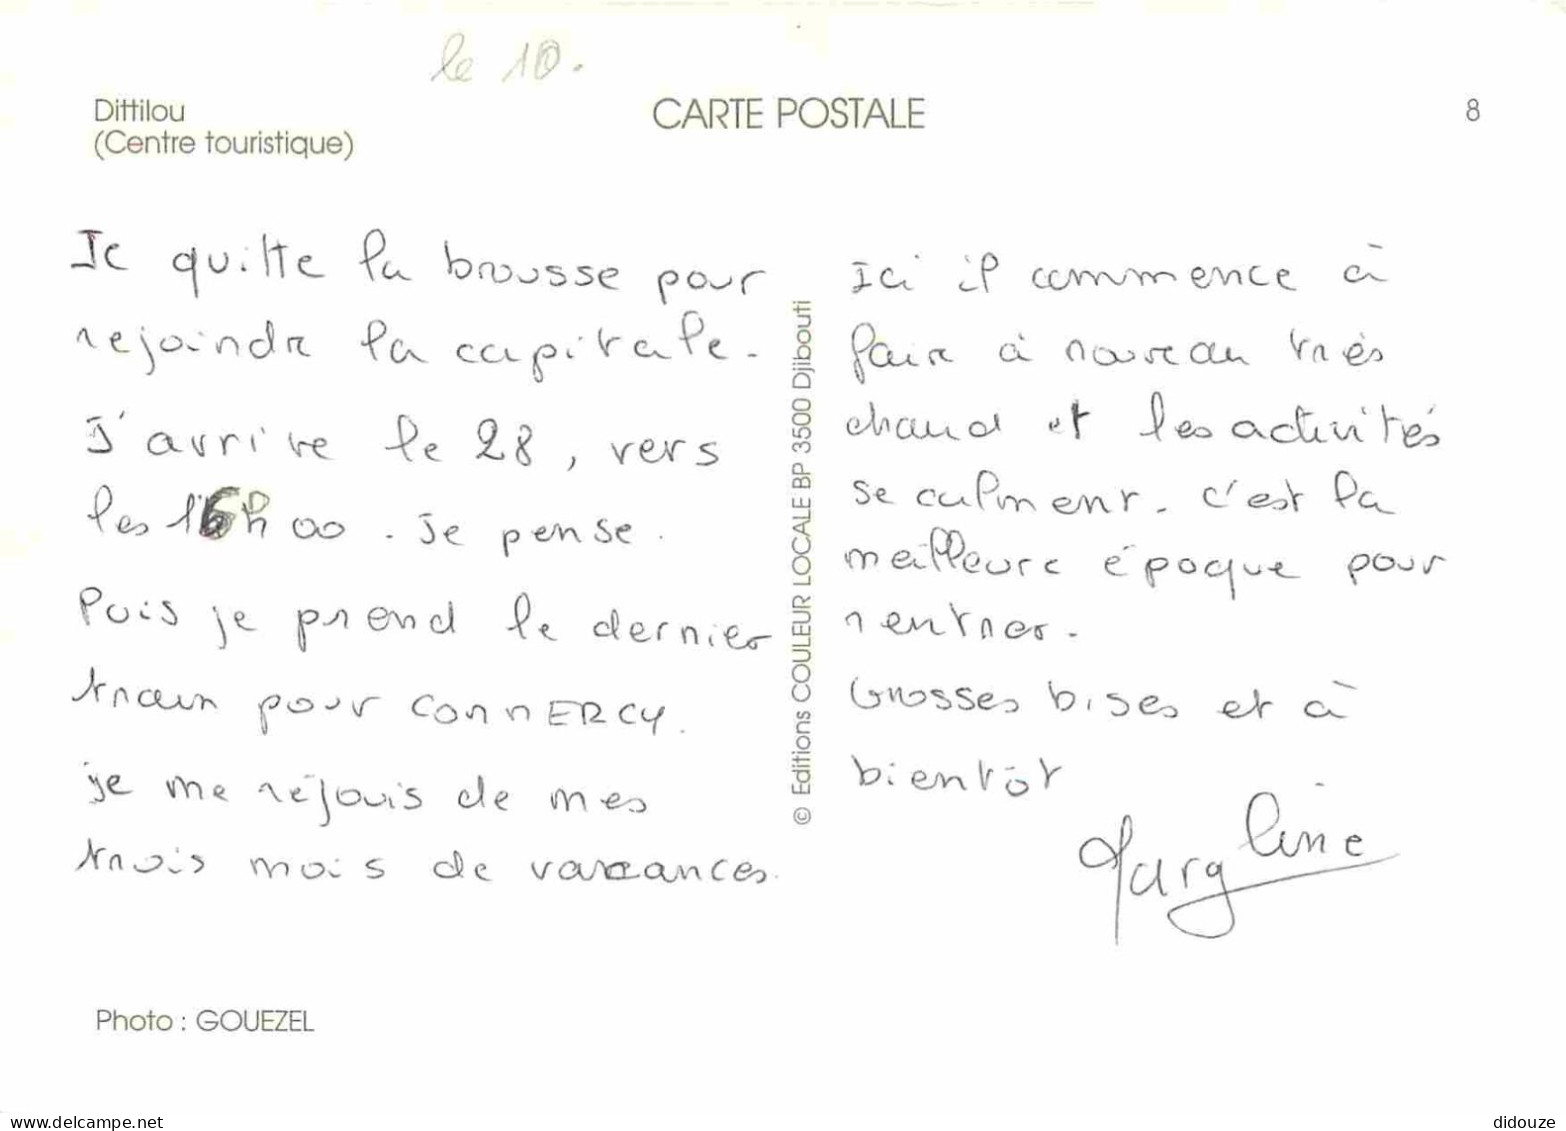 le 10.
Dittilou
(Centre touristique)
CARTE POSTALE
8
Je quitte la brousse pour
rejoindre la capitale.
J'arrive le 28, vers
les 16h00. Je pense.
Puis je prend le dernier
train pour CONNERCY.
je me réjouis de mes
trois mois de vacances.
© Editions COULEUR LOCALE BP 3500 Djibouti
Ici il commence à
faire à nouveau très
chaud et les activités
se calment. C'est la
meilleure époque pour
rentrer.
Grosses bises et à
bientôt
Margline
Photo : GOUEZEL
www.delcampe.net
didouze